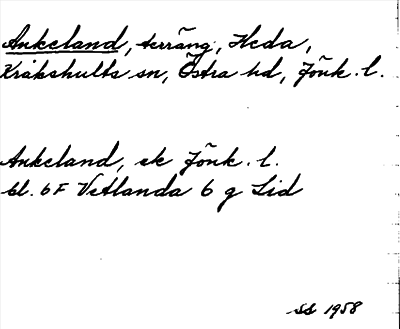 Ankeland, terräng, Heda,
Kråkshults sn, Östra hd, Jönk. l.
Ankeland, ek Jönk. l.
bl. 6F Vetlanda 6 g Lid
SS 1958